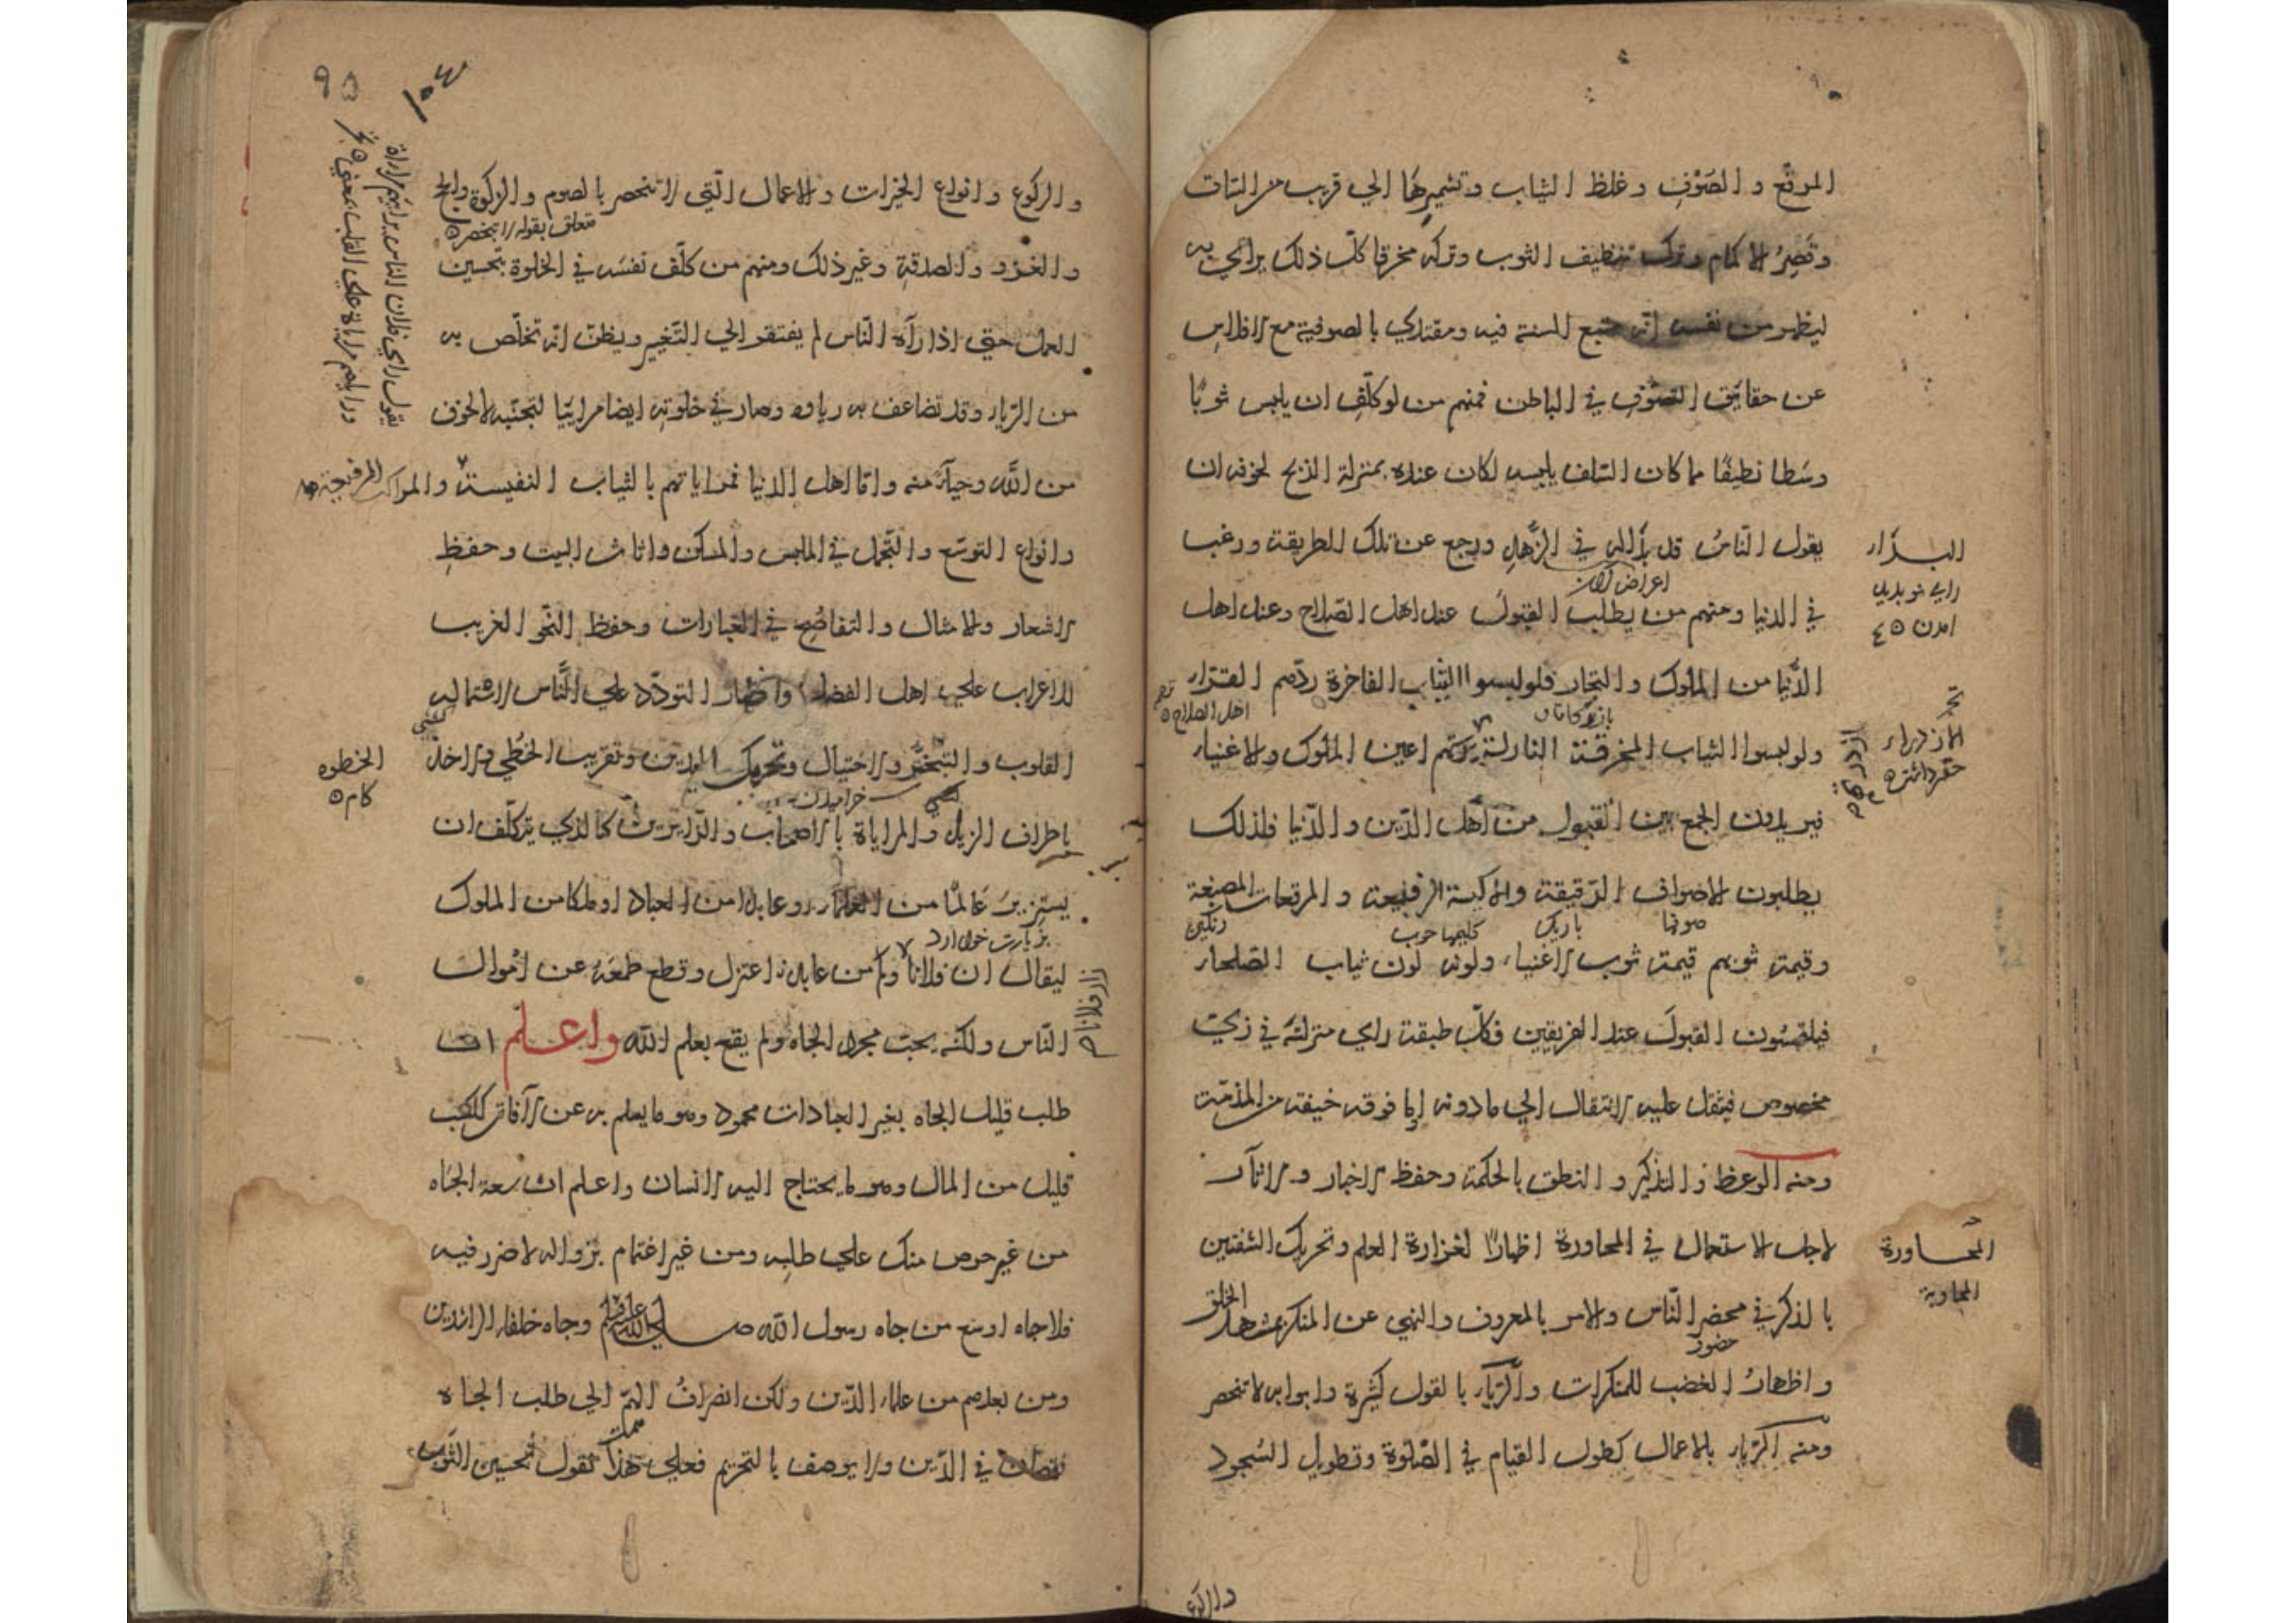 المرقع والصَوْفِ وغلظ الثياب وتشميرهَا الي قريب من الساق
وقَصِرُ الاكمام وترك تنظيف الثوب وتركه مخرقا كلّ ذلك يرائي به
ليظهر من نفسه انّه متبع للسنة فيه ومقتدي بالصوفية مع الافلاس
عن حقايق التصوّفِ في الباطن فمنهم من لو كلّف ان يلبس ثوبًا
وسَطا نظيفًا مما كان السّلف يلبسه لكان عنده بمنزلة الذبح لخوفه ان
يقول النّاسُ قد بدَا له في الزّهدِ ورجع عن تلك الطريقة ورغب
في الدنيا ومنهم من يطلب القبولَ عند اهل الصّلاح وعند اهل
الدّنيا من الملوك والتجار فلو لبسوا الثياب الفاخرة ردّهم القرّار
ولو لبسوا الثياب المخرقة البذلة ازدرتهم اعين الملوك والاغنياء
فيريدون الجمع بين القبول من اهل الدّين والدّنيا فلذلك
يطلبون الاصواف الدّقيقة والاكسية الرفيعة والمرقعات المصبغة
صوفها باريك كليمها خوب رنگين
وقيمة ثوبهم قيمة ثوب الاغنياء ولونه لون ثياب الصّلحاء
فيلتمسُون القبولَ عند الفريقين فكلّ طبقة راي منزلته في زيّ
مخصوص فيثقل عليه الانتقال الي ما دونه او ما فوقه خيفة من المذمّة
ومنه الوعظ والتذكير والنطق بالحكمة وحفظ الاخبار والاثار
لاجل الاستعمال في المحاورة اظهارًا لغزارة العلم وتحريك الشفتين
بالذكر في محضر النّاس والامر بالمعروف والنهي عن المنكر بمشهد الخلق
حضور
واظهارُ الغضب للمنكرات والرّياء بالقول كثيرة وابوابه لا تنحصر
ومنه الرّياء بالاعمال كطول القيام في الصّلوة وتطويل السُجود
المحاورة
المجاوبة
والركوع
والركوع وانواع الخيرات والاعمال الّتي لا تنحصر بالصوم والزكوة والحج
متعلق بقوله لا تنحصر
والغزو والصدقةِ وغير ذلك ومنهم من كلّف نفسَه في الخلوة بتحسين
العمل حتي اذا رآه النّاس لم يفتقر الي التّغيير ويظنّ انّه تخلّص به
من الرّياء وقد تضاعف به رياؤه وصار في خلوته ايضا مرائيًا لتجنبه لا لخوف
من اللّه وحياءً منه وامّا اهل الدنيا فمراياتهم بالثياب النفيسة والمراكب الرفيعة
وانواع التوسّع والتجمّل في الملبس والمسكن واثاث البيت وحفظِ
الاشعار والامثال والتفاصُحِ في العبارات وحفظ النّحو الغريب
للاغراب علي اهل الفضل واظهار التودّد علي النّاس لاستمالة
القلوب والتبختُر والاختيال وتحريك اليدين وتقريب الخُطي والاخذ
خراميدن
باطراف الذيل والمراياة بالاصحاب والزّايرين كالذي يتكلّف ان
يستزيرَ عَالمًا من العلماء او عابدا من العباد او ملكا من الملوك
بزيارت خواند
ليقال ان فلانًا وكم من عابد اعتزل وقطع طمعَهُ عن اموال
النّاس ولكنّه يحبّ مجرد الجاه ولم يقنع بعلم اللّه واعلم ان
طلب قليل الجاه بغير العبادات محمود وهو ما يسلم به عن الآفات ككسب
قليل من المال وهو ما يحتاج اليه الانسان واعلم ان سعة الجَاه
من غير حرص منك علي طلبه ومن غير اغتمام بزواله لا ضرر فيه
فلا جاه اوسَع من جاه رسول اللّه صلي الله عليه وسلم وجاه خلفاء الراشدين
ومن بعدهم من علماء الدّين ولكن انصرافُ الهمّ الي طلب الجاه
نقصان في الدّين ولا يوصف بالتحريم فعلي هذا نقول تحسين الثوب
الخطوه
كام